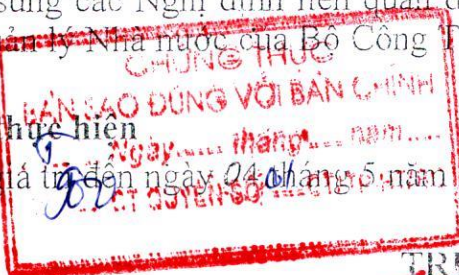 sung các Nghị định liên quan đ
ản lý Nhà nước của Bộ Công T
CHỨNG THỰC
BẢN SAO ĐÚNG VỚI BẢN CHÍNH
thực hiện
Ngày...... tháng..... năm.....
iá trị đến ngày 04 tháng 5 năm
QUYỂN SỐ
TR